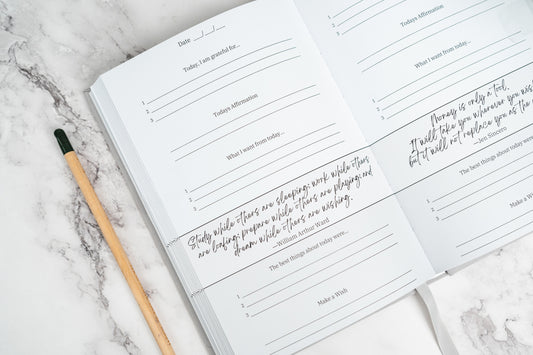 Date __/__/__
Today, I am grateful for...
1
2
3
Todays Affirmation
What I want from today...
1
2
3
Study while others are sleeping; work while others
are loafing; prepare while others are playing; and
dream while others are wishing.
—William Arthur Ward
The best things about today were...
1
2
3
Make a Wish
1
2
3
Todays Affirmation
What I want from today...
1
2
3
Money is only a tool.
It will take you wherever you wish
but it will not replace you as the
—Jen Sincero
The best things about today
1
2
3
Make a